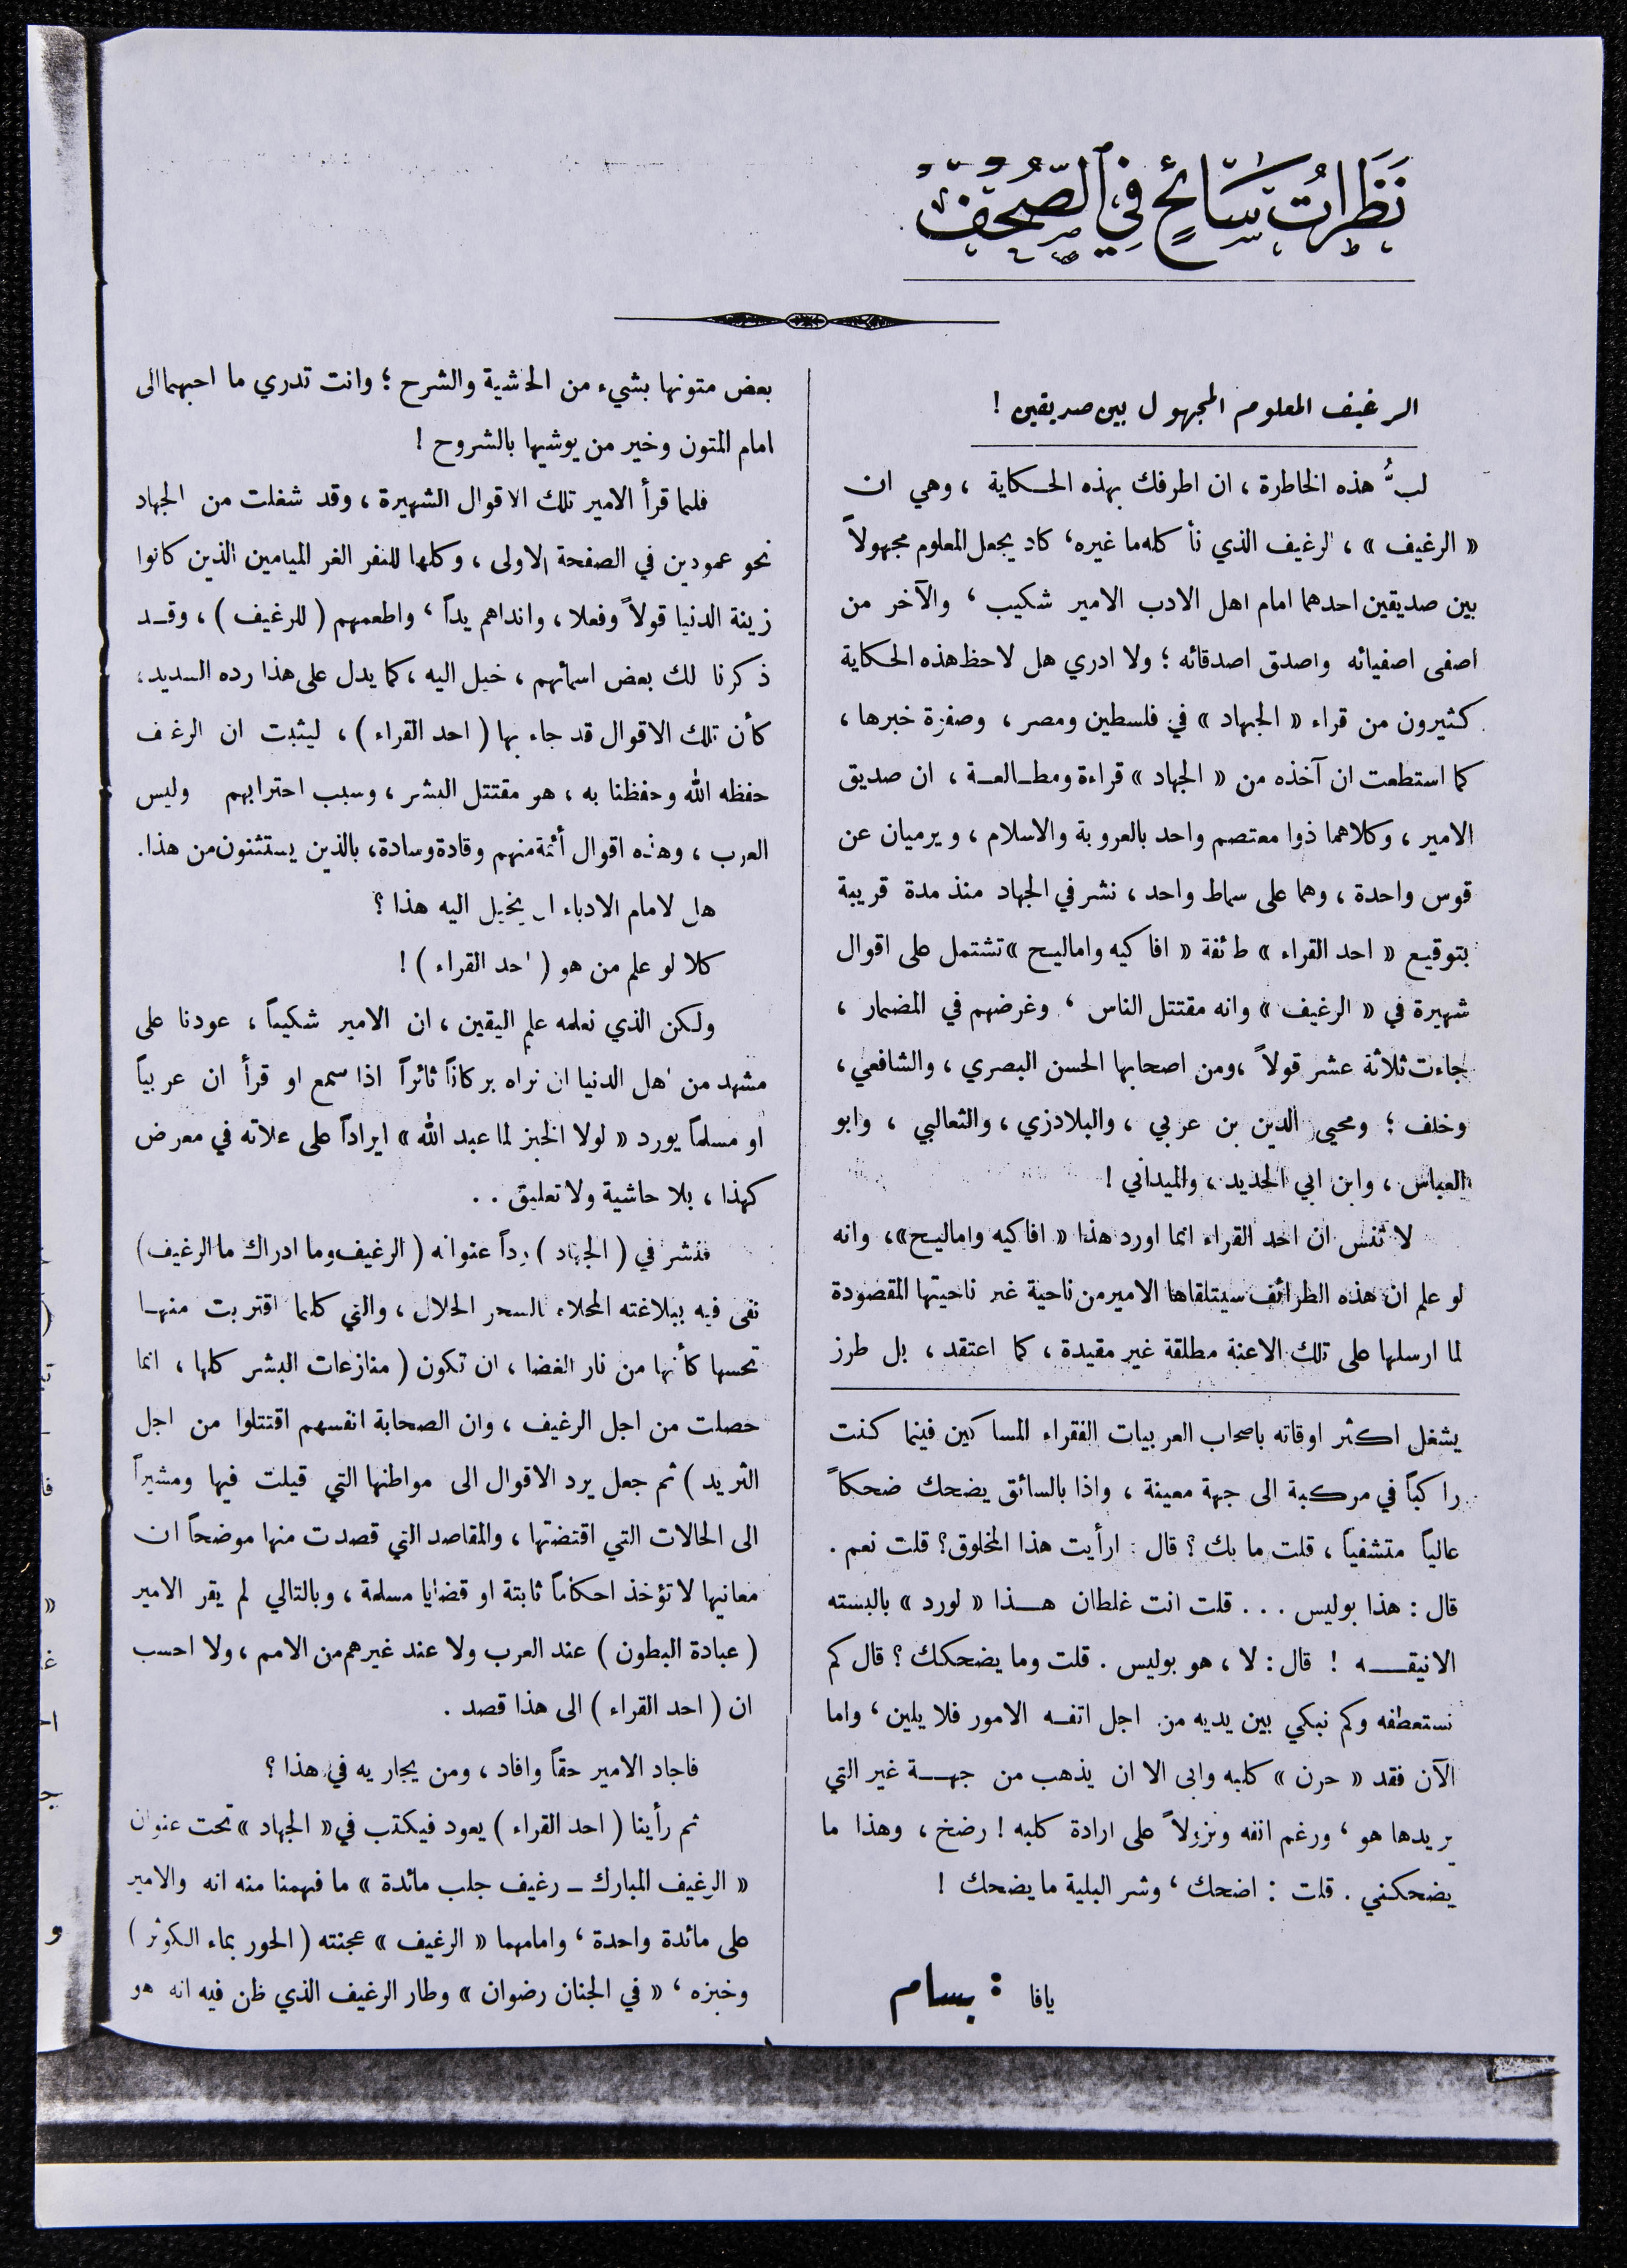 نَظَرَاتُ سَائِحٍ فِي الصُّحُف
الرغيف المعلوم المجهول بين صديقين !
لبُّ هذه الخاطرة ، ان اطرفك بهذه الحكاية ، وهي ان
« الرغيف » ، الرغيف الذي نأكله ما غيره ، كاد يجعل المعلوم مجهولاً
بين صديقين احدهما امام اهل الادب الامير شكيب ، والآخر من
اصفى اصفيائه واصدق اصدقائه ؛ ولا ادري هل لاحظ هذه الحكاية
كثيرون من قراء « الجهاد » في فلسطين ومصر ، وصفوة خبرها ،
كما استطعت ان آخذه من « الجهاد » قراءة ومطالعة ، ان صديق
الامير ، وكلاهما ذوا معتصم واحد بالعروبة والاسلام ، ويرميان عن
قوس واحدة ، وهما على سماط واحد ، نشر في الجهاد منذ مدة قريبة
بتوقيع « احد القراء » طائفة « افاكيه واماليح » تشتمل على اقوال
شهيرة في « الرغيف » وانه مقتتل الناس ، وغرضهم في المضمار ،
جاءت ثلاثة عشر قولاً ، ومن اصحابها الحسن البصري ، والشافعي ،
وخلف ؛ ومحيي الدين بن عربي ، والبلاذري ، والثعالبي ، وابو
العباس ، وابن ابي الحديد ، والميداني !
لا تنس ان احد القراء انما اورد هذا « افاكيه واماليح » ، وانه
لو علم ان هذه الظرائف سيتلقاها الامير من ناحية غير ناحيتها المقصودة
لما ارسلها على تلك الاعنة مطلقة غير مقيدة ، كما اعتقد ، بل طرز
يشغل اكثر اوقاته باصحاب العربيات الفقراء المساكين فينما كنت
راكباً في مركبة الى جهة معينة ، واذا بالسائق يضحك ضحكاً
عالياً متشفياً ، قلت ما بك ؟ قال : ارأيت هذا المخلوق ؟ قلت نعم .
قال : هذا بوليس . . . قلت انت غلطان هذا « لورد » بالبسته
الانيقه ! قال : لا ، هو بوليس . قلت وما يضحكك ؟ قال كم
نستعطفه وكم نبكي بين يديه من اجل اتفه الامور فلا يلين ، واما
الآن فقد « حرن » كلبه وابى الا ان يذهب من جهة غير التي
يريدها هو ، ورغم انفه ونزولاً على ارادة كلبه ! رضخ ، وهذا ما
يضحكني . قلت : اضحك ، وشر البلية ما يضحك !
يافا : بسام
بعض متونها بشيء من الحاشية والشرح ؛ وانت تدري ما احبهما الى
امام المتون وخير من يوشيها بالشروح !
فلما قرأ الامير تلك الاقوال الشهيرة ، وقد شغلت من الجهاد
نحو عمودين في الصفحة الاولى ، وكلها للنفر الغر الميامين الذين كانوا
زينة الدنيا قولاً وفعلا ، وانداهم يداً ، واطعمهم ( للرغيف ) ، وقد
ذكرنا لك بعض اسمائهم ، خيل اليه ، كما يدل على هذا رده السديد ،
كأن تلك الاقوال قد جاء بها ( احد القراء ) ، ليثبت ان الرغيف
حفظه الله وحفظنا به ، هو مقتتل البشر ، وسبب احترابهم وليس
العرب ، وهذه اقوال أئمة منهم وقادة وسادة ، بالذين يستثنون من هذا .
هل لامام الادباء ان يخيل اليه هذا ؟
كلا لو علم من هو ( احد القراء ) !
ولكن الذي نعلمه علم اليقين ، ان الامير شكيباً ، عودنا على
مشهد من اهل الدنيا ان نراه بركاناً ثائراً اذا سمع او قرأ ان عربياً
او مسلماً يورد « لولا الخبز لما عبد الله » ايراداً على علاته في معرض
كهذا ، بلا حاشية ولا تعليق . .
فنشر في ( الجهاد ) رداً عنوانه ( الرغيف وما ادراك ما الرغيف )
نفى فيه ببلاغته المحلاء بالسحر الحلال ، والتي كلما اقتربت منها
تحسبها كأنها من نار الغضا ، ان تكون ( منازعات البشر كلها ، انما
حصلت من اجل الرغيف ، وان الصحابة انفسهم اقتتلوا من اجل
الثريد ) ثم جعل يرد الاقوال الى مواطنها التي قيلت فيها ومشيراً
الى الحالات التي اقتضتها ، والمقاصد التي قصدت منها موضحاً ان
معانيها لا تؤخذ احكاماً ثابتة او قضايا مسلمة ، وبالتالي لم يقر الامير
( عبادة البطون ) عند العرب ولا عند غيرهم من الامم ، ولا احسب
ان ( احد القراء ) الى هذا قصد .
فاجاد الامير حقاً وافاد ، ومن يجاريه في هذا ؟
ثم رأينا ( احد القراء ) يعود فيكتب في « الجهاد » تحت عنوان
« الرغيف المبارك ـ رغيف جلب مائدة » ما فهمنا منه انه والامير
على مائدة واحدة ، وامامهما « الرغيف » عجنته ( الحور بماء الكوثر )
وخبزه ، « في الجنان رضوان » وطار الرغيف الذي ظن فيه انه هو